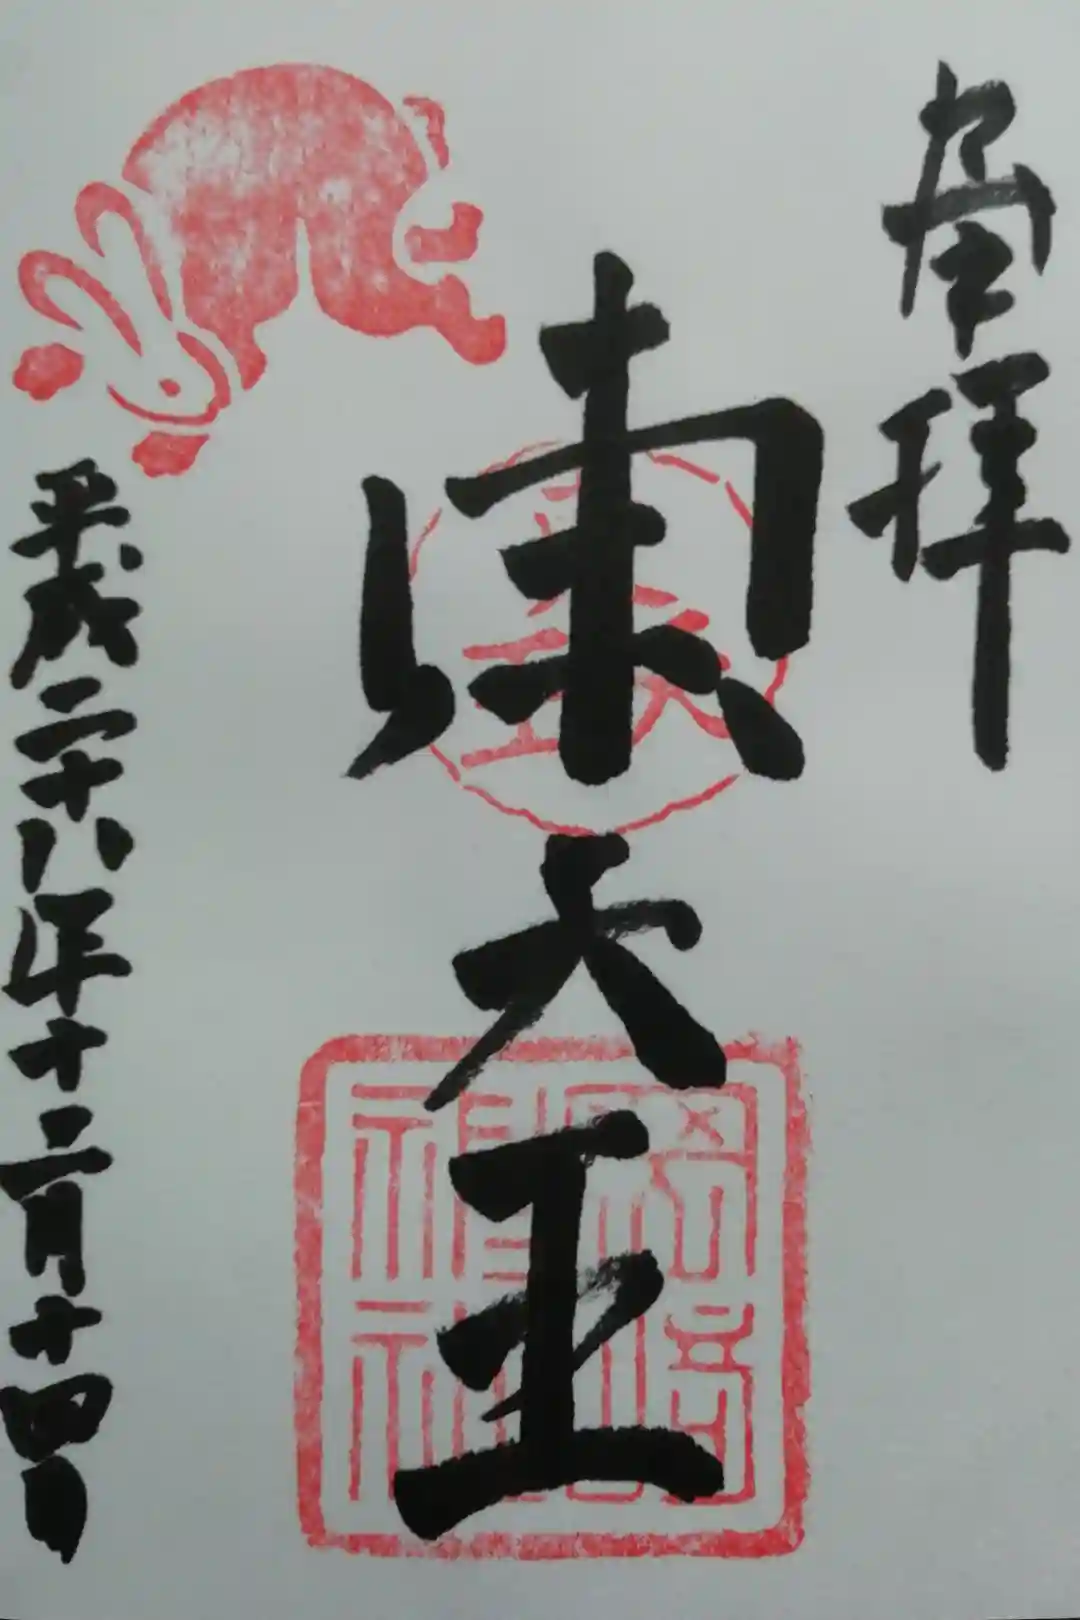 奉拝
東天王
岡崎
神社
平成二十八年十二月十四日